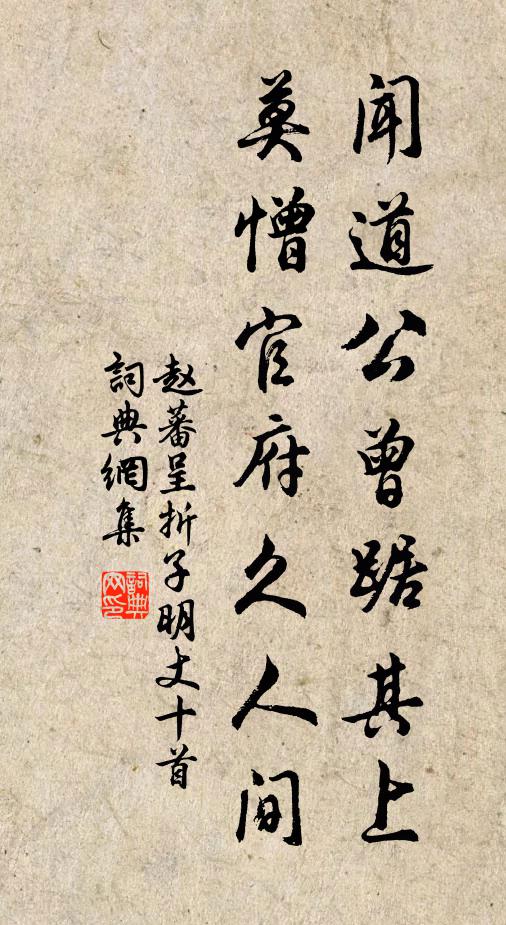 闻道公曾踞其上
莫憎官府久人间
赵蕃呈折子明丈十首
詞典網集
詞典网印